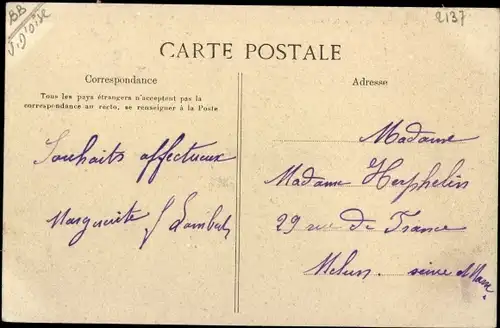 BB
V. D'OISE
2137
CARTE POSTALE
Correspondance
Tous les pays étrangers n'acceptent pas la
correspondance au recto, se renseigner à la Poste
Souhaits affectueux
Marguerite Lambert
Adresse
Madame
Madame Herphelin
29 rue de France
Melun. seine et Marne